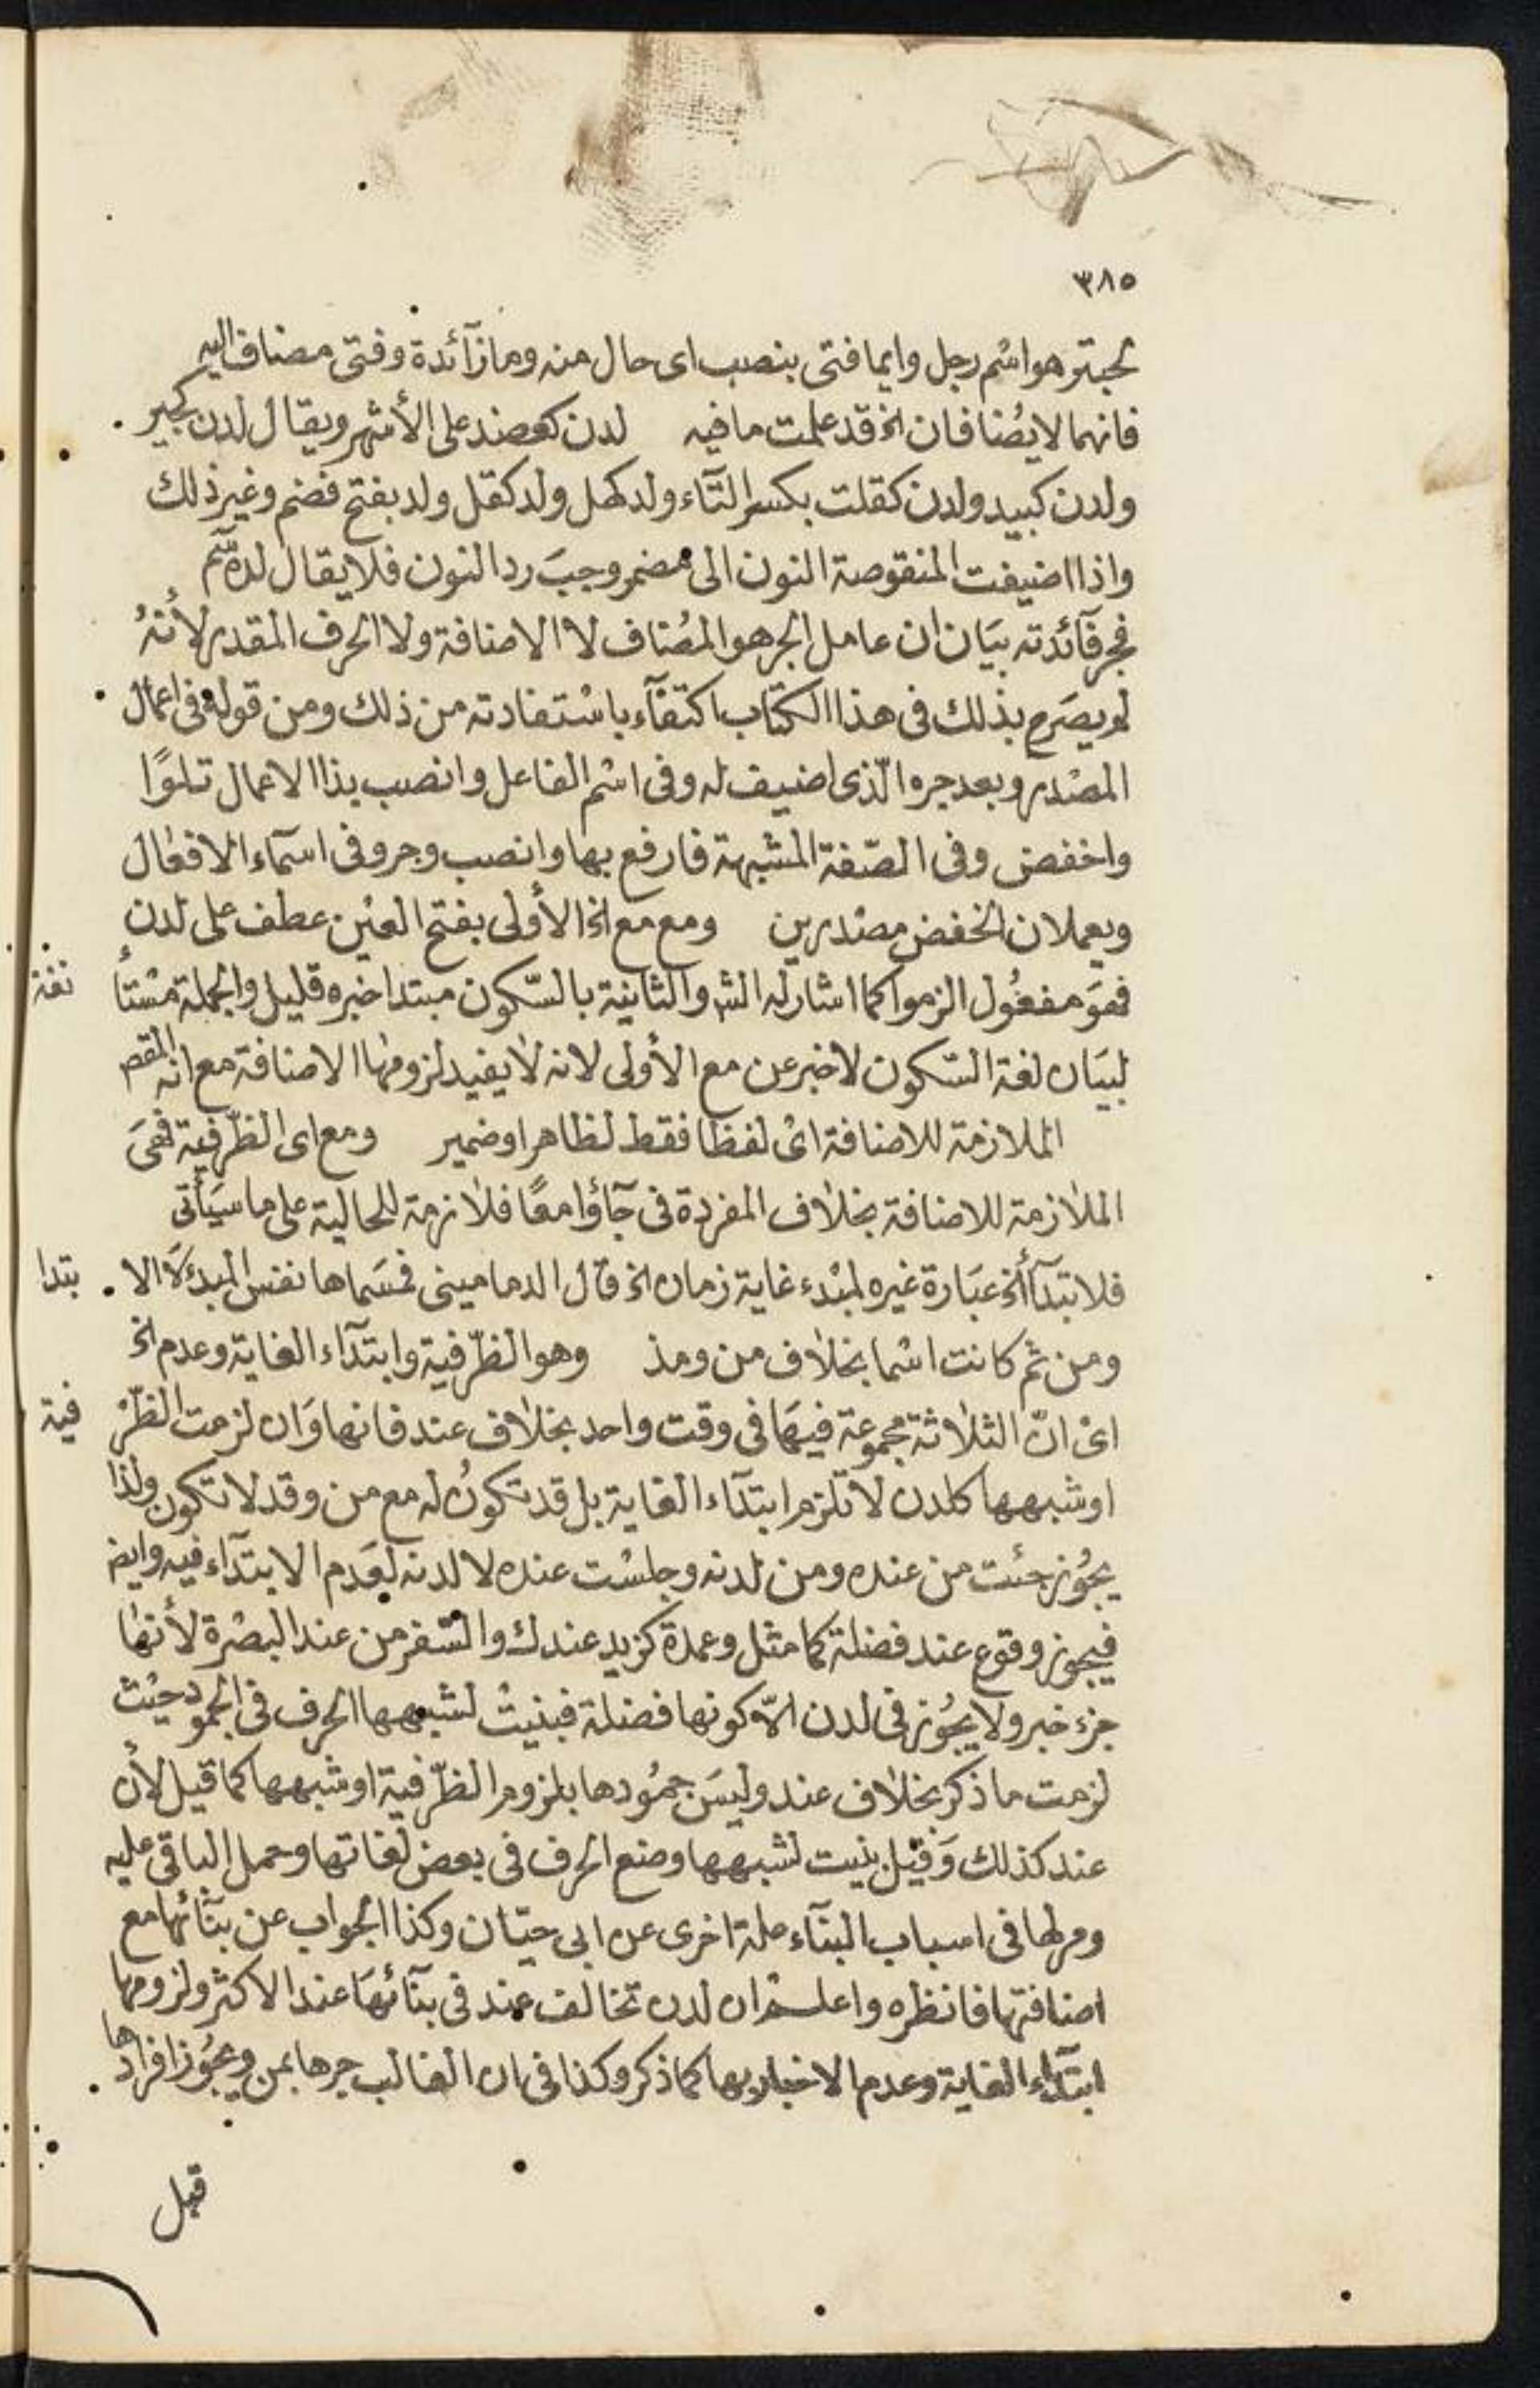 ٣٨٥
لحبتر هو اسْم رجل وايما فتى بنصب اى حال منه وما زآئدة وفتى مضاف اليه
فانهما لايضُافان الخ قد علمت مافيه لدن كعضد على الأشهر ويقال لدن كجير
ولدن كبيد ولدن كقلت بكسر التآء ولد كهل ولد كقل ولد بفتح فضم وغير ذلك
واذا اضيفت المنقوصة النون الى مضمر وجبَ رد النون فلا يقال لده شم
فجر فآئدته بيَان ان عامل الجر هو المضُاف لا الاضافة ولا الحرف المقدر لأنهُ
لم يصَرح بذلك فى هذا الكتاب اكتفآء باسْتفادته من ذلك ومن قوله فى اعمال
المصْدر وبعد جره الّذى اضيف له وفى اسْم الفاعل وانصب بذا الاعمال تلوًا
واخفض وفى الصّفة المشبهة فارفع بها وانصب وجر وفى اسمآء الافعال
ويعملان الخفض مصْدرين ومع مع الخ الأولى بفتح العيْن عطف على لدن
فهوَ مفعُول الزموا كما اشار له الش والثانية بالسّكون مبتدا خبره قليل والجملة مسْتأ
نفة
لبيَان لغة السّكون لا خبر عن مع الأولى لانه لا يفيد لزومها الاضافة مع انه المقصم
الملازمة للاضافة اىْ لفظا فقط لظاهر او ضمير ومع اى الظّرفية فهىَ
الملازمة للاضافة بخلاف المفردة فى جآؤا معًا فلازمة للحالية على ما سيَأتى
فلابتدآ الخ عبَارة غيره لمبْدء غاية زمان الخ قال الدمامينى فسَماها نفس المبدء لَا الا
بتدا
ومن ثم كانت اسْما بخلاف من ومذ وهو الظّرفية وابتدآء الغاية وعدم الخ
اىْ انّ الثلاثة مجموعة فيهَا فى وقت واحد بخلاف عند فانها وَان لزمت الظّرْ
فية
او شبهها كلدن لا تلزم ابتدآء الغاية بل قد تكونُ له مع من وقد لا تكون ولذا
يجُوز جئت من عنده ومن لدنه وجلسْت عنده لا لدنه لعَدم الابتدآء فيه وايض
فيجوز وقوع عند فضلة كما مثل وعمدة كزيد عندك والسّفر من عند البصْرة لأنها
جزء خبر ولا يجُوز فى لدن الاّ كونها فضلة فبنيتْ لشبهها الحرف فى الجمود حيْث
لزمت ما ذكر بخلاف عند وليسَ جمُودها بلزوم الظّرفية او شبهها كما قيل لأن
عند كذلك وَقيْل بنيت لشبهها وضع الحرف فى بعض لغاتها وحمل الباقى عليه
ومر لها فى اسباب البنآء علة اخرى عن ابى حيّان وكذا الجواب عن بنآئها مع
اضافتها فانظره واعلم ان لدن تخالف عند فى بنآئهَا عند الاكثر ولزومها
ابتدآء الغاية وعدم الاخبار بها كما ذكر وكذا فى ان الغالب جرها بمن ويجُوز افرادها
قبل